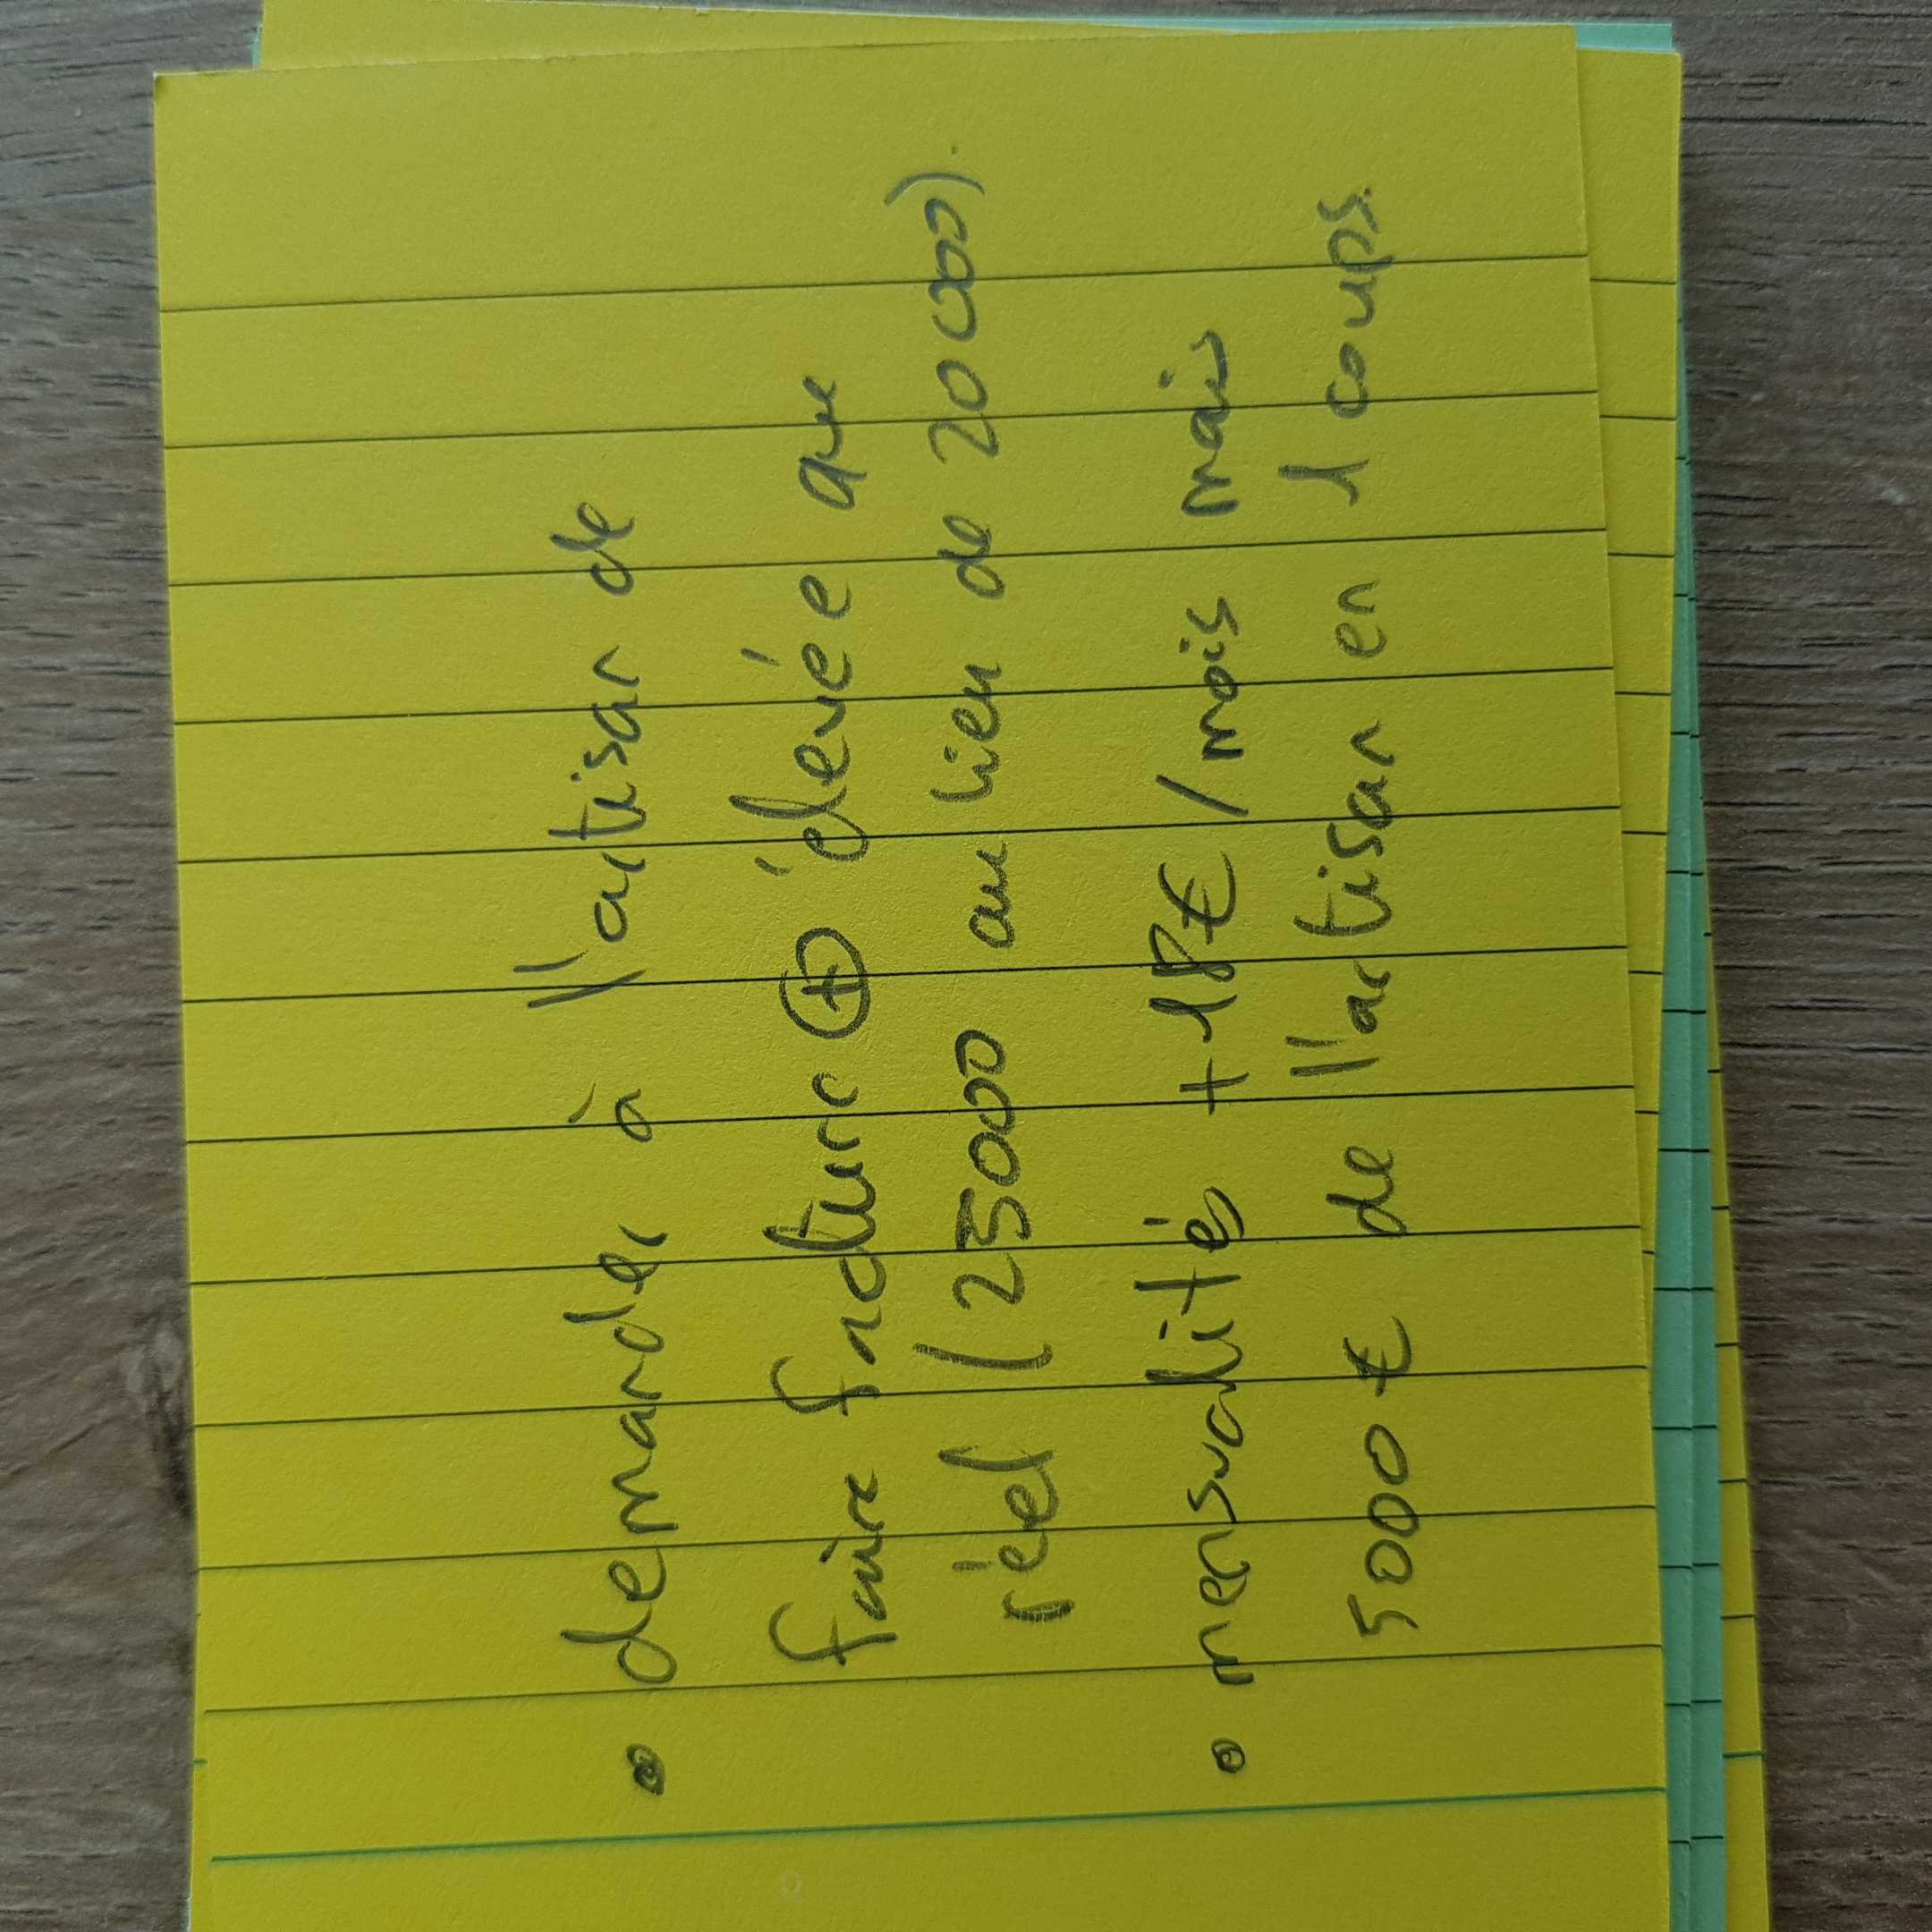 • demander à l'artisan de
faire facture ⊕ élevée que
réel (25000 au lieu de 20000).
• mensualités +18€/mois mais
5000€ de l'artisan en 1 coups.